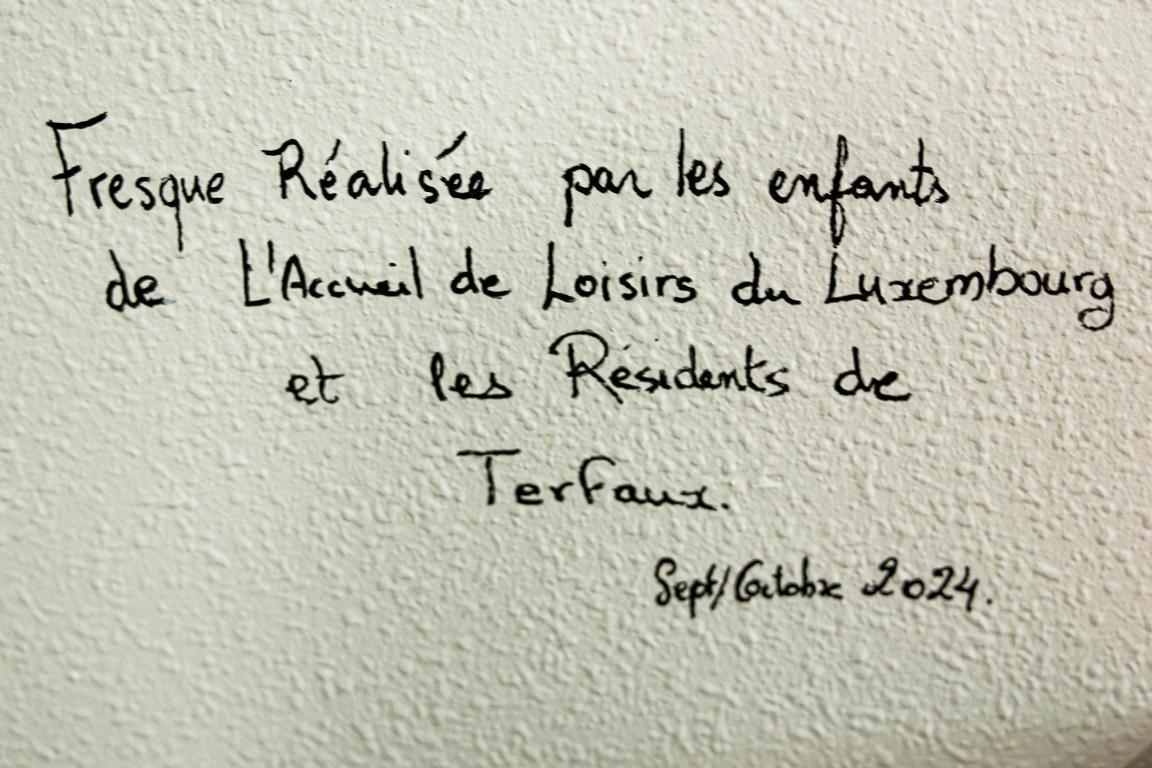 Fresque Réalisée par les enfants
de L'Accueil de Loisirs du Luxembourg
et les Résidents de
Terfaux.
Sept/Octobre 2024.